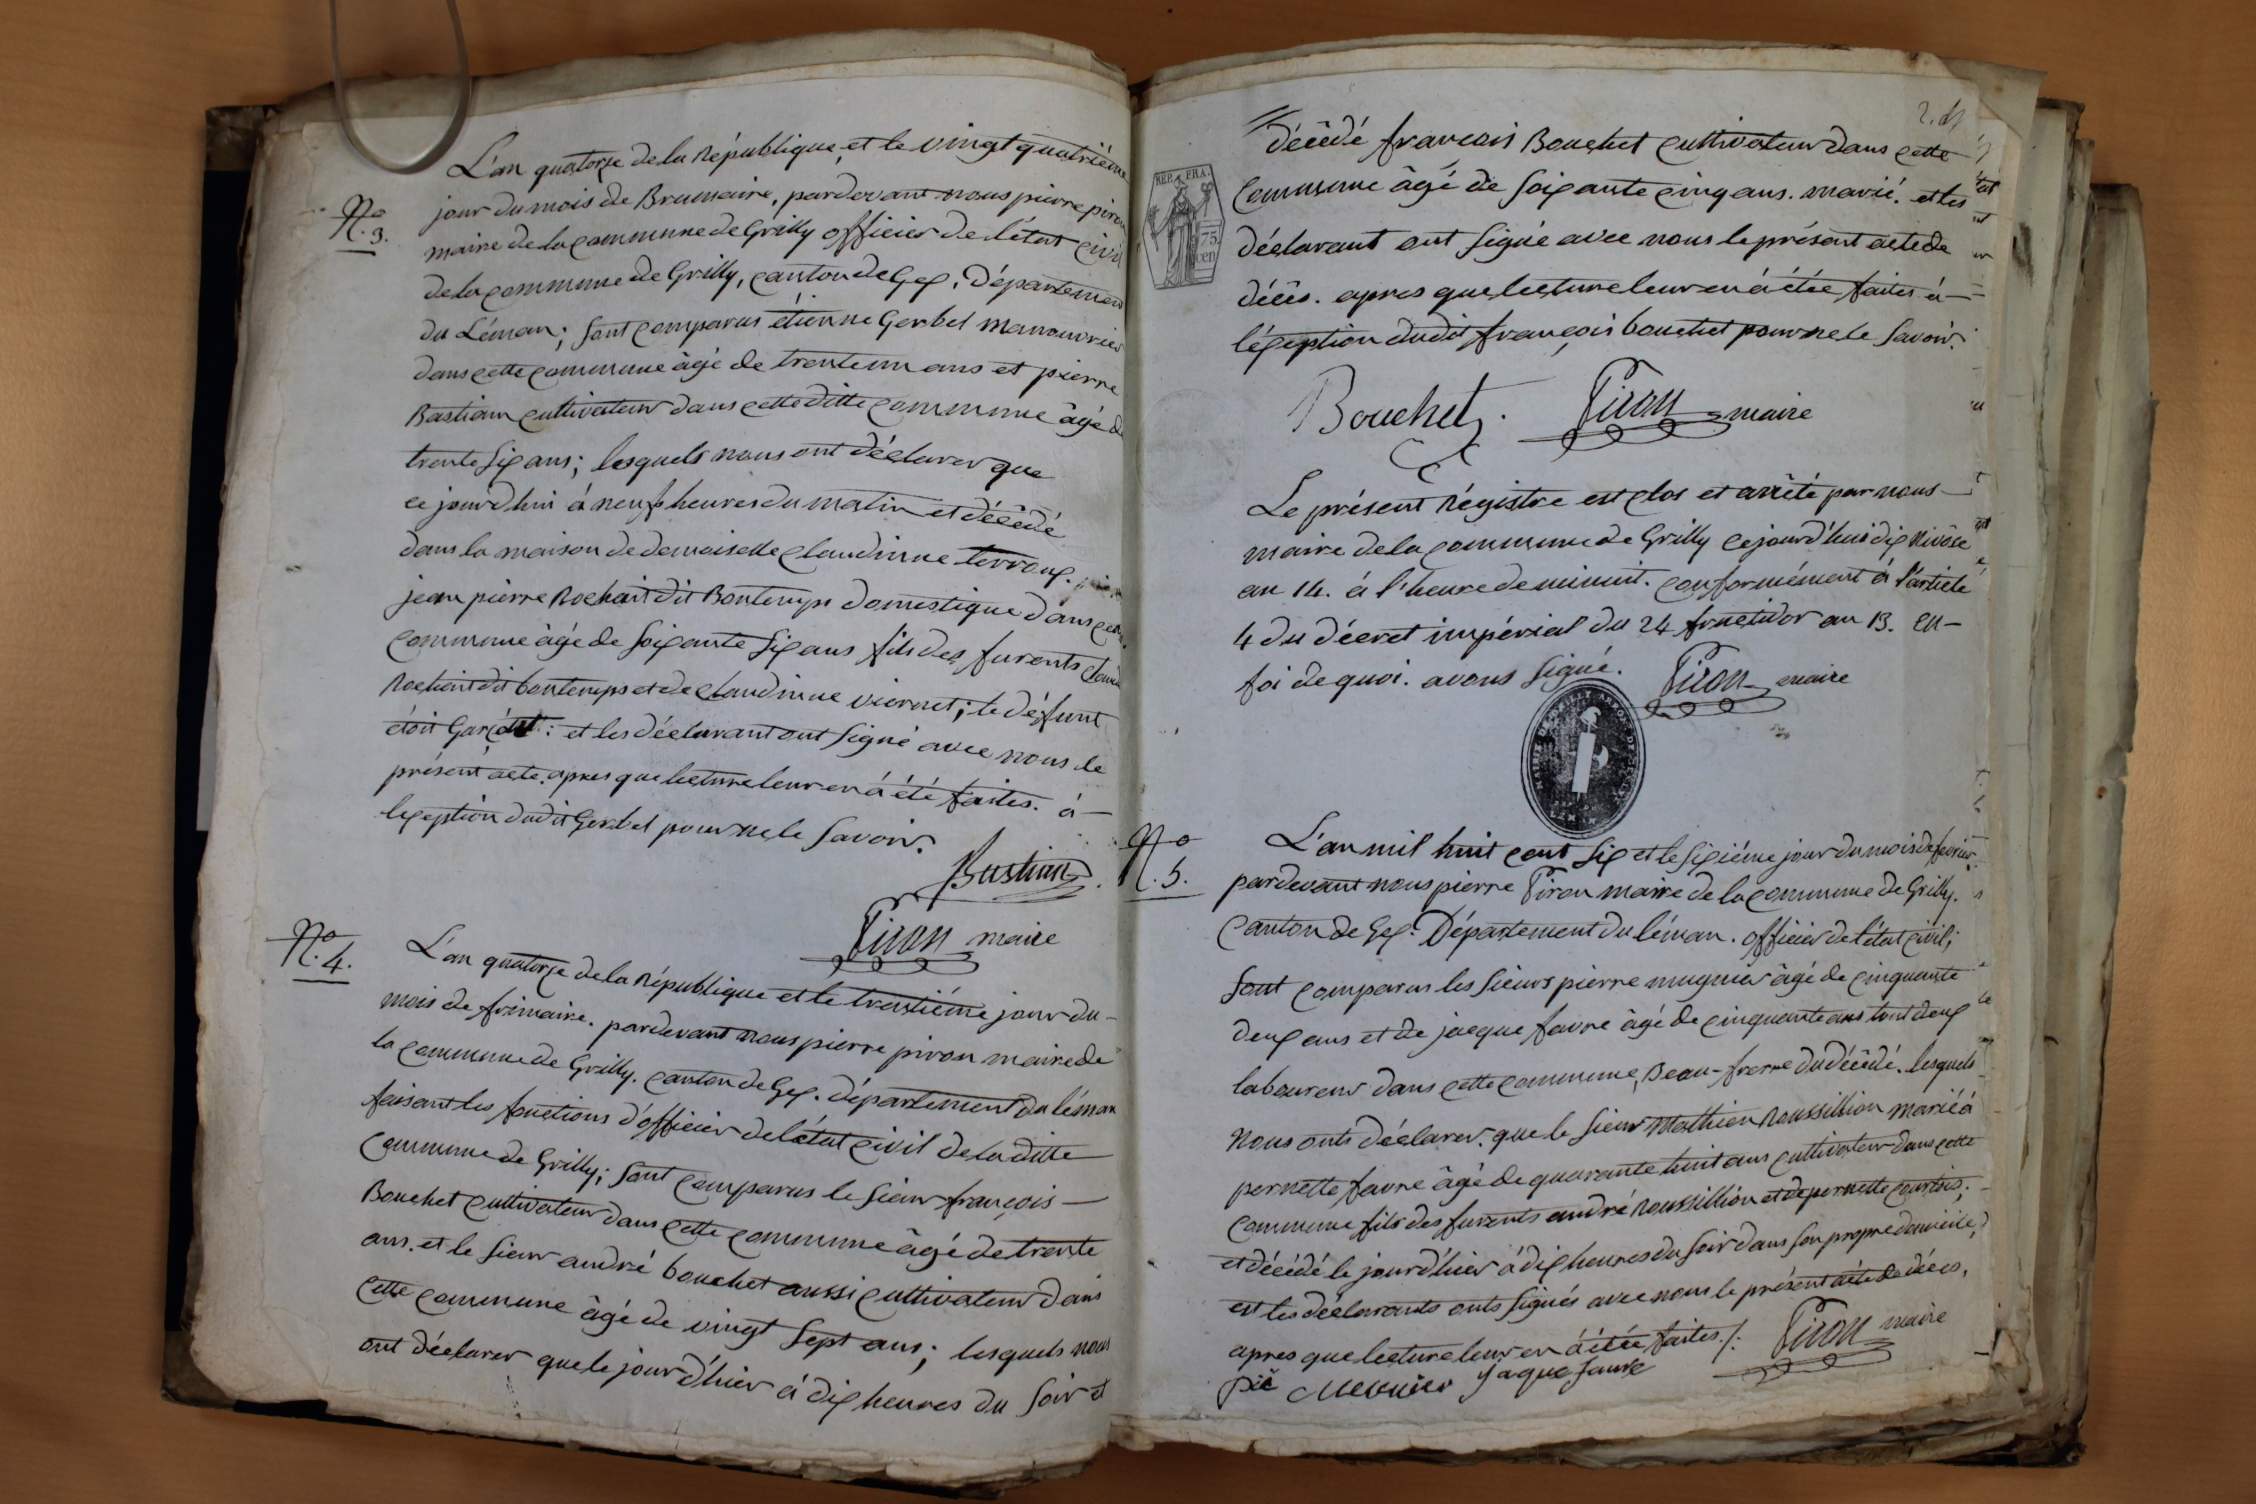 N.o 3.
L'an quatorze de la République, et le vingt quatriéme
jour du mois de Brumaire, pardevant nous pierre piron
maire de la commune de Grilly officier de l'état civil
de la commune de Grilly, canton de Gex, Département
du Léman; sont comparus étienne Gerbel manouvrier
dans cette commune âgé de trente un ans et pierre
Bastian cultivateur dans cette ditte commune âgé de
trente six ans; lesquels nous ont déclarer que
ce jourd'hui á neuf heures du matin et décêdé
dans la maison de demoiselle claudinne terroux.
jean pierre Rochait dit Bontemps domestique dans cette
commune âgé de soixante six ans fils des furents claude
Rochait dit bontemps et de claudinne viornet; le défunt
étoit Garçon : et les déclarant ont signé avec nous le
présent acte. apres que lecture leur en á été faites. á
lexeption dudit Gerbel pour ne le savoir.
Bastian
Piron maire
N.o 4.
L'an quatorze de la République et le trentiéme jour du
mois de frimaire. pardevant nous pierre piron maire de
la commune de Grilly. canton de Gex. département du léman
faisant les fonctions d'officier de l'état civil de la ditte
commune de Grilly; sont comparus le sieur françois
Bouchet cultivateur dans cette commune âgé de trente
ans. et le sieur andré bouchet aussi cultivateur dans
cette commune âgé de vingt sept ans; lesquels nous
ont déclarer que le jour d'hier á dix heures du soir et
décêdé francois Bouchet cultivateur dans cette
commune âgé de soixante cinq ans. marié. et les
déclarant ont signé avec nous le présent acte de
décês. apres que lecture leur en á étée faites á
léxception dudit françois bouchet pour ne le savoir.
REP. FRA.
75
cen
Bouchet. Piron maire
Le présent Régistre est clos et arrêté par nous
maire de la commune de Grilly cejourd'hui dix Nivôse
an 14. á l'heure de minuit. conformément á l'article
4 du décret impérial du 24 fructidor an 13. en
foi de quoi. avons signé. Piron maire
N.o 5.
L'an mil huit cent six et le sixiéme jour du mois de fevrier.
pardevant nous pierre Piron maire de la commune de Grilly.
canton de Gex. Département du léman. officier de l'état civil;
sont comparus les sieurs pierre mugnier âgé de cinquante
deux ans et de jacque favre âgé de cinquante ans tout deux
laboureur dans cette commune, Beau-frerre du décêdé. lesquels
nous onts déclarer. que le sieur Mathieu Roussillion marié á
pernette favre âgé de quarante huit ans cultivateur dans cette
commune fils des furents andré Roussillion et de pernette courtois;
et décédé le jour d'hier á dix heures du soir dans son propre domicile;
et les déclarants onts signés avec nous le présent acte de décès.
apres que lecture leur en á étée faites./. Piron maire
pië Meunier jaque favre